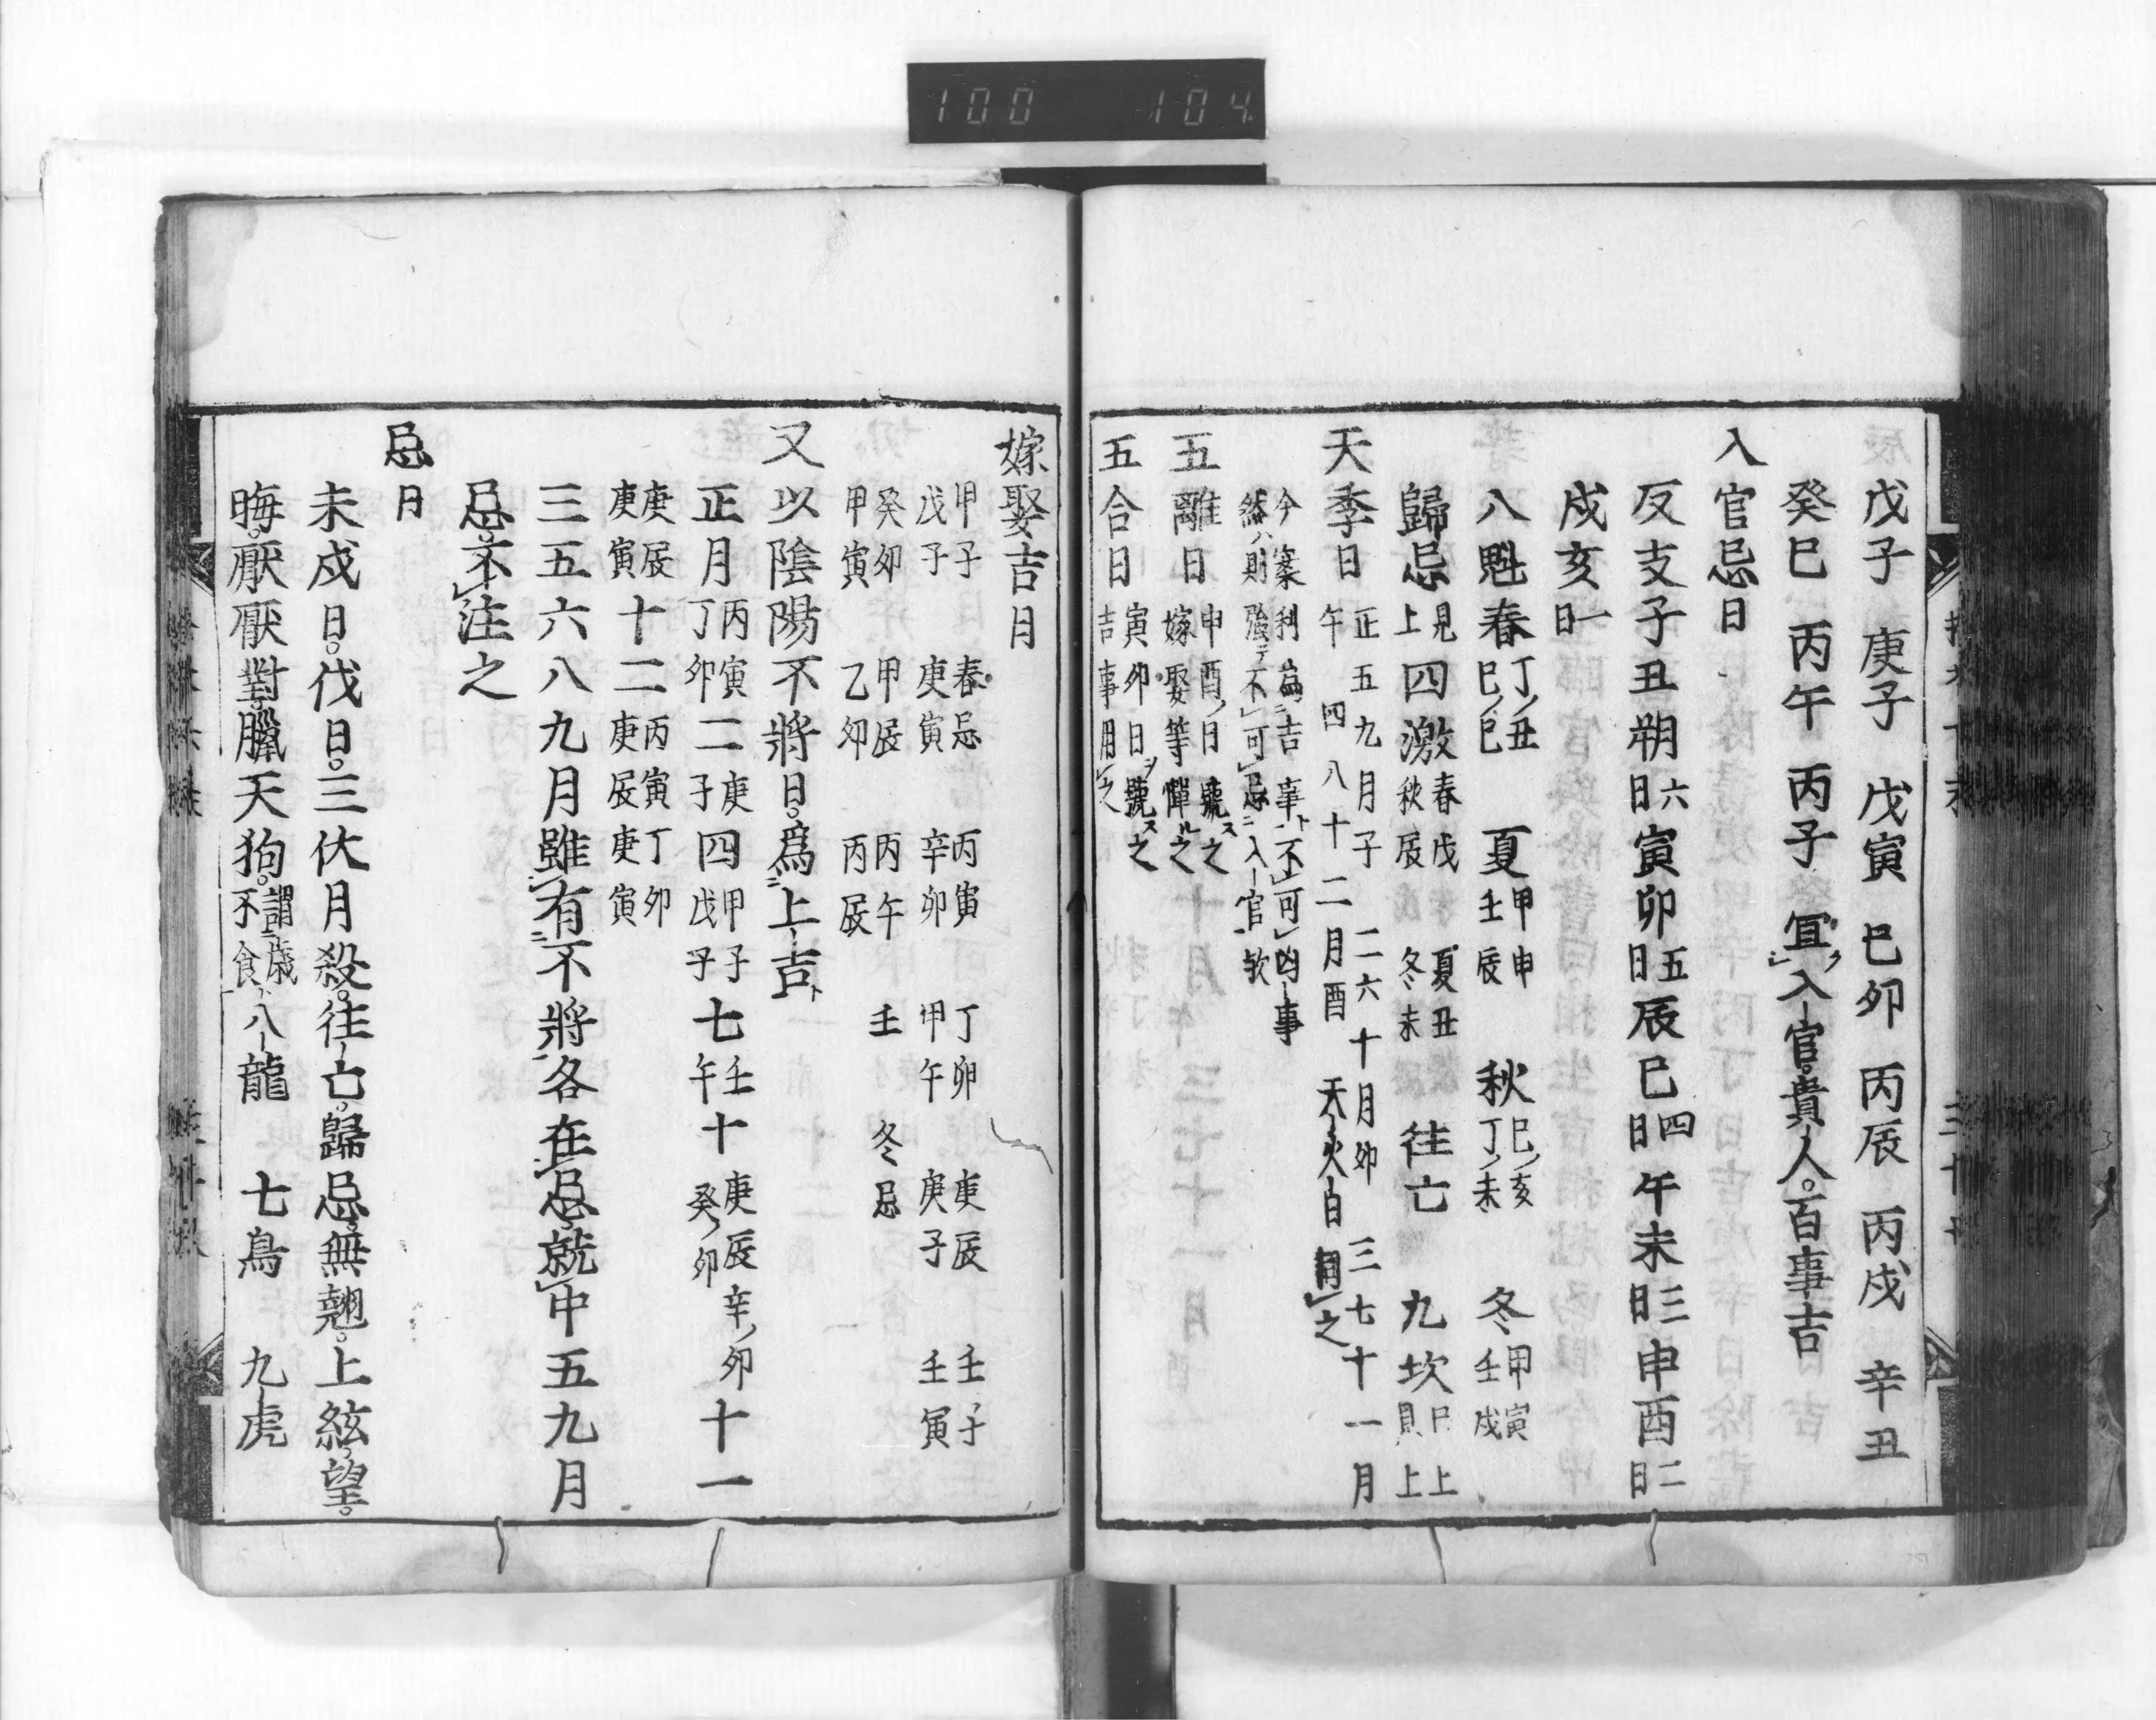 100 104
戊子 庚子 戊寅 巳卯 丙辰 丙戌 辛丑
癸巳 丙午 丙子 冝入官貴人百事吉
入官忌日
反支子丑朔六日寅卯五日辰巳四日午未三日申酉二日
戌亥一日
八魁春丁丑巳巳 夏甲申壬辰 秋巳亥丁未 冬甲寅壬戌
歸忌見上四激春戌夏丑秋辰冬未 徃亡 九坎已上貝上
天季日正五九月子 二六十月卯 三七十一月午 四八十二月酉 天火自同之
今案利爲吉事不可凶事
然ハ則強テ不可忌入官欤
五離日申酉ノ日號ス之嫁娶等憚ル之
五合日寅卯日ヲ號ス之吉事用之
嫁娶吉月
甲子 春忌 丙寅 丁卯 庚辰 壬子
戊子 庚寅 辛卯 甲午 庚子 壬寅
癸卯 甲辰 丙午 壬 冬忌
甲寅 乙卯 丙辰
又以陰陽不將日爲上吉
正月丙寅丁卯二庚子四甲子戊子七壬午十庚辰辛卯癸卯十一
庚辰庚寅十二丙寅丁卯庚辰庚寅
三五六八九月雖有不將各在忌就中五九月
忌不注之
忌日
未戌日伐日三伏月殺徃亡歸忌無翹上絃望
晦厭厭對臘天狗謂歲不食八龍 七鳥 九虎